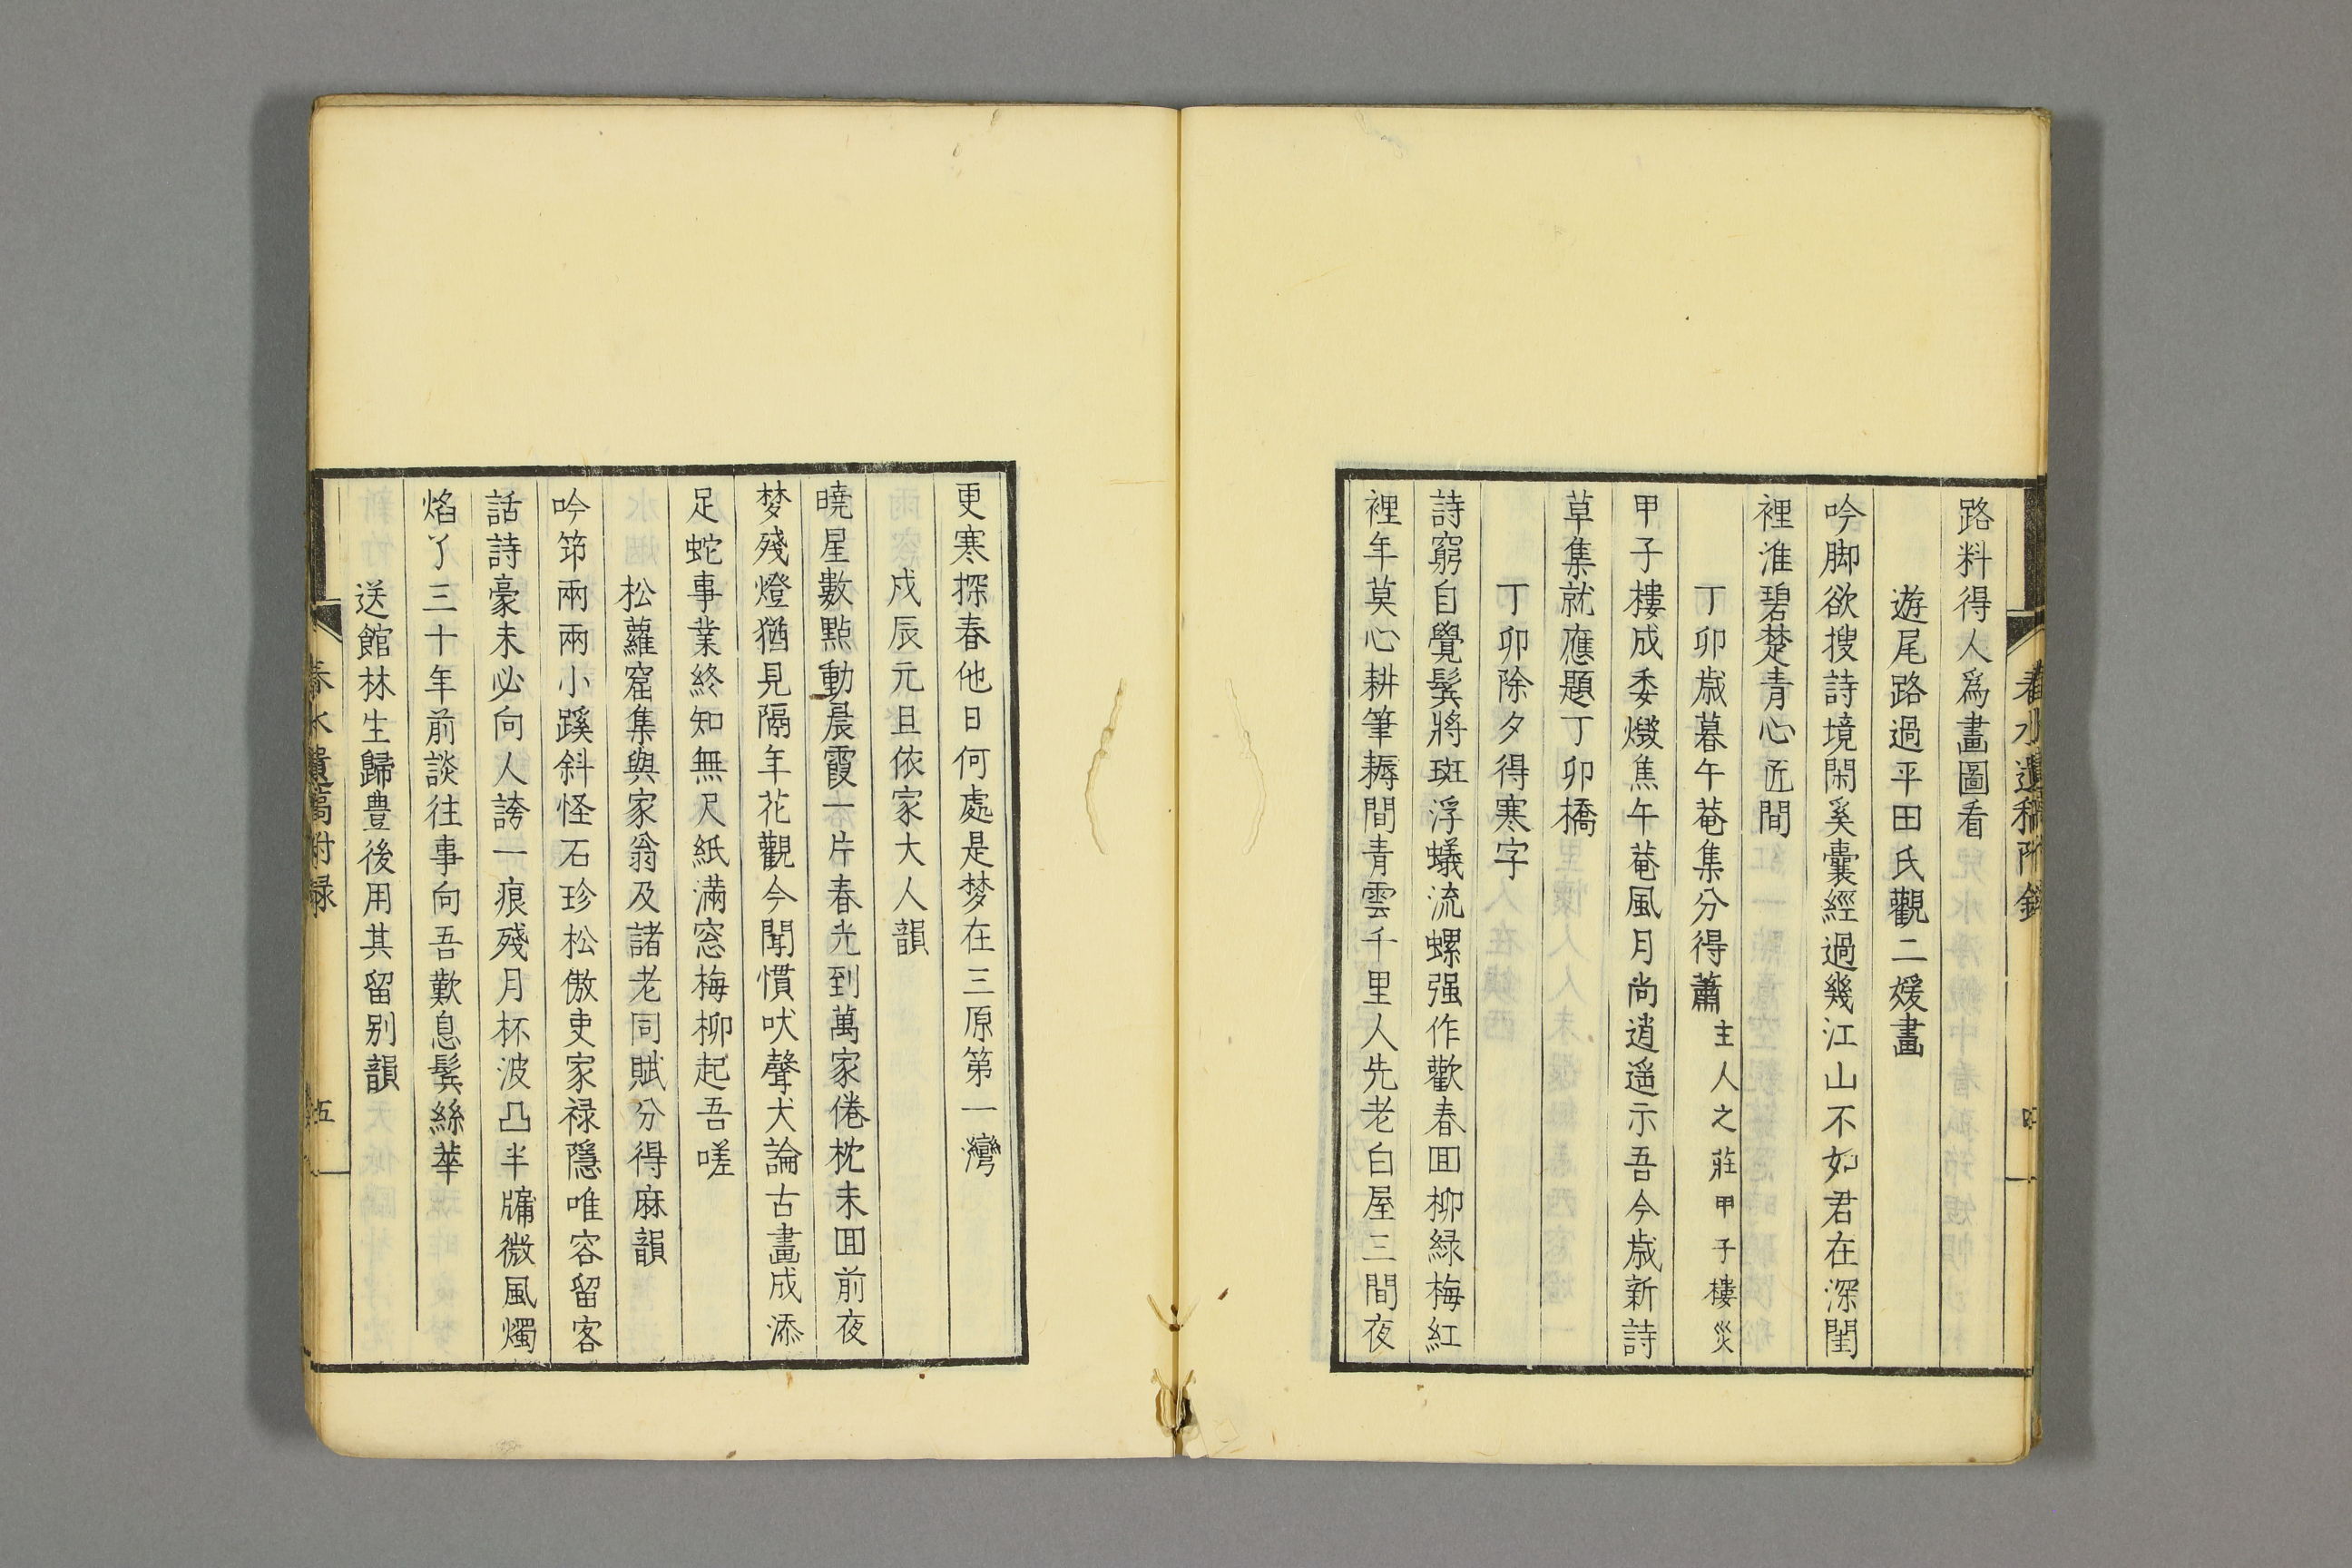 春水遺稿附錄
路料得人爲畫圖看
遊尾路過平田氏觀二媛畫
吟脚欲搜詩境閑奚囊經過幾江山不如君在深閨
裡淮碧楚青心匠間
丁卯歳暮午菴集分得蕭主人之莊甲子樓災
甲子樓成委燬焦午菴風月尚逍遥示吾今歳新詩
草集就應題丁卯橋
丁卯除夕得寒字
詩窮自覺鬂將斑浮蟻流螺强作歡春囬柳緑梅紅
裡年莫心耕筆耨間青雲千里人先老白屋三間夜
更寒探春他日何處是梦在三原第一灣
戍辰元旦依家大人韻
曉星數點動晨霞一片春光到萬家倦枕未囬前夜
梦殘燈猶見隔年花觀今聞慣吠聲犬論古畫成添
足蛇事業終知無尺紙滿窓梅柳起吾嗟
松蘿窟集與家翁及諸老同賦分得麻韻
吟笻兩兩小蹊斜怪石珍松傲吏家禄隱唯容留客
話詩豪未必向人誇一痕殘月杯波凸半牗微風燭
焰丫三十年前談往事向吾歎息鬂絲華
送館林生歸豊後用其留别韻
春水遺稿附録
五